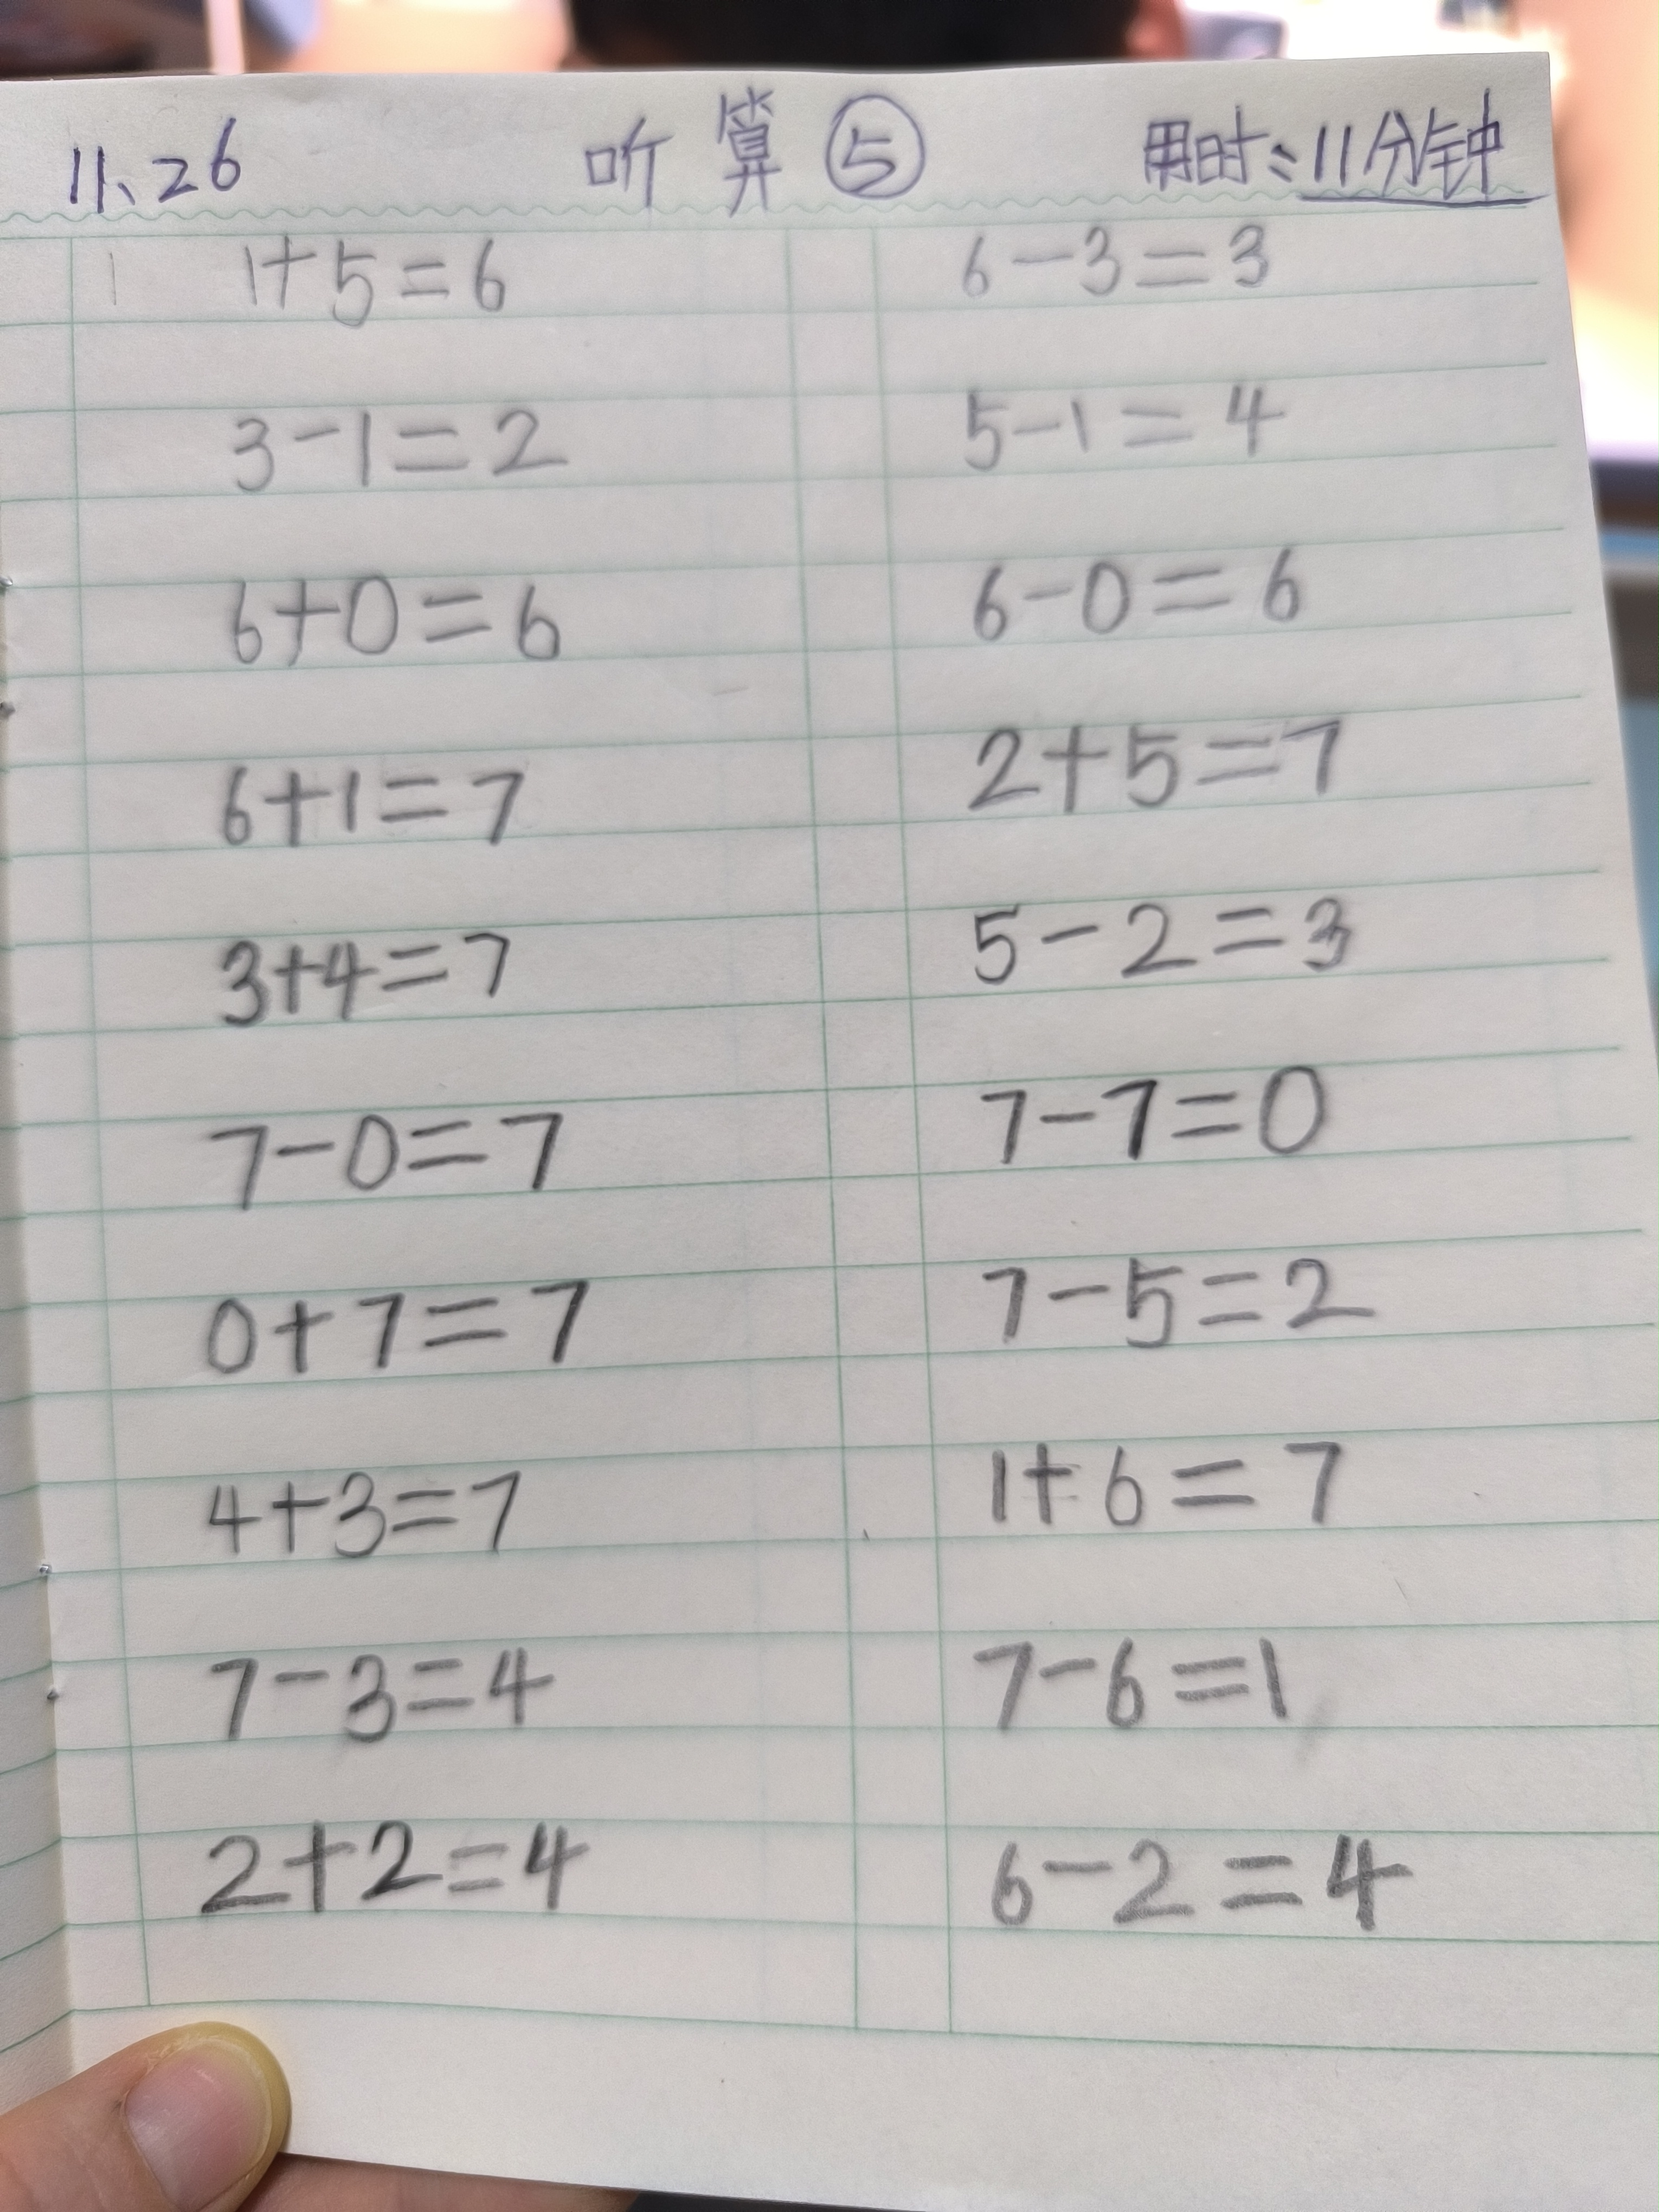 11、26 听算⑤ 用时：11分钟
1+5=6 6-3=3
3-1=2 5-1=4
6+0=6 6-0=6
6+1=7 2+5=7
3+4=7 5-2=3
7-0=7 7-7=0
0+7=7 7-5=2
4+3=7 1+6=7
7-3=4 7-6=1
2+2=4 6-2=4